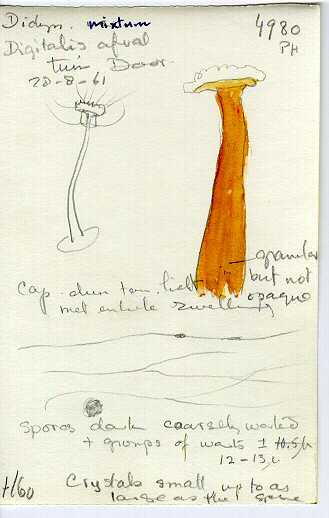 Didym. mixtum
4980
PH
Digitalis afval
tuin Door.
20-8-61
granular
but not
opaque
Cap. dun ten. licht
met enkele zwelling
Spores dark coarsely warted
+ groups of warts
12-13 µ
+/60 Crystals small up to as
large as the spore